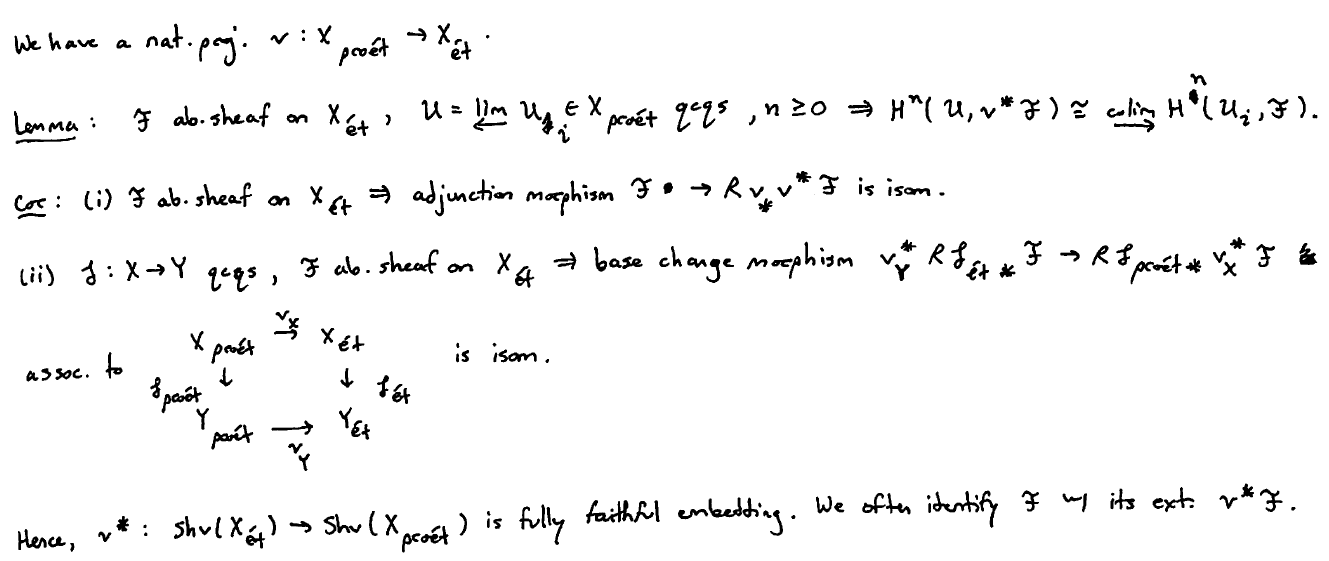 We have a nat. proj. ν : X_proét → X_ét.
Lemma: ℱ ab. sheaf on X_ét, U = lim← U_i ∈ X_proét qcqs, n ≥ 0 ⇒ Hⁿ(U, ν*ℱ) ≅ colim→ Hⁿ(U_i, ℱ).
Cor: (i) ℱ ab. sheaf on X_ét ⇒ adjunction morphism ℱ → Rν_*ν*ℱ is isom.
(ii) f : X → Y qcqs, ℱ ab. sheaf on X_ét ⇒ base change morphism ν_Y^* Rf_ét* ℱ → Rf_proét* ν_X^* ℱ
assoc. to X_proét →^{ν_X} X_ét is isom.
f_proét ↓ ↓ f_ét
Y_proét →_{ν_Y} Y_ét
Hence, ν* : Shv(X_ét) → Shv(X_proét) is fully faithful embedding. We often identify ℱ w/ its ext. ν*ℱ.